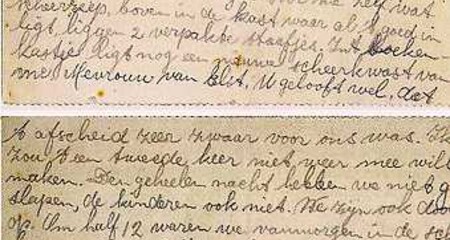 voor me zelf wat
scheerzeep, boven in de kast waar al 't goed in
ligt, liggen 2 verpakte staafjes. In 't boeken-
kastje ligt nog een nieuwe scheerkwast van
me. Mevrouw van Elst. U gelooft wel, dat
't afscheid zeer zwaar voor ons was. Ik
zou 't een tweede keer niet weer mee wil
maken. Den geheelen nacht hebben we niet g
slapen, de kinderen ook niet. We zijn ook doo
op. Om half 12 waren we vanmorgen in de sch